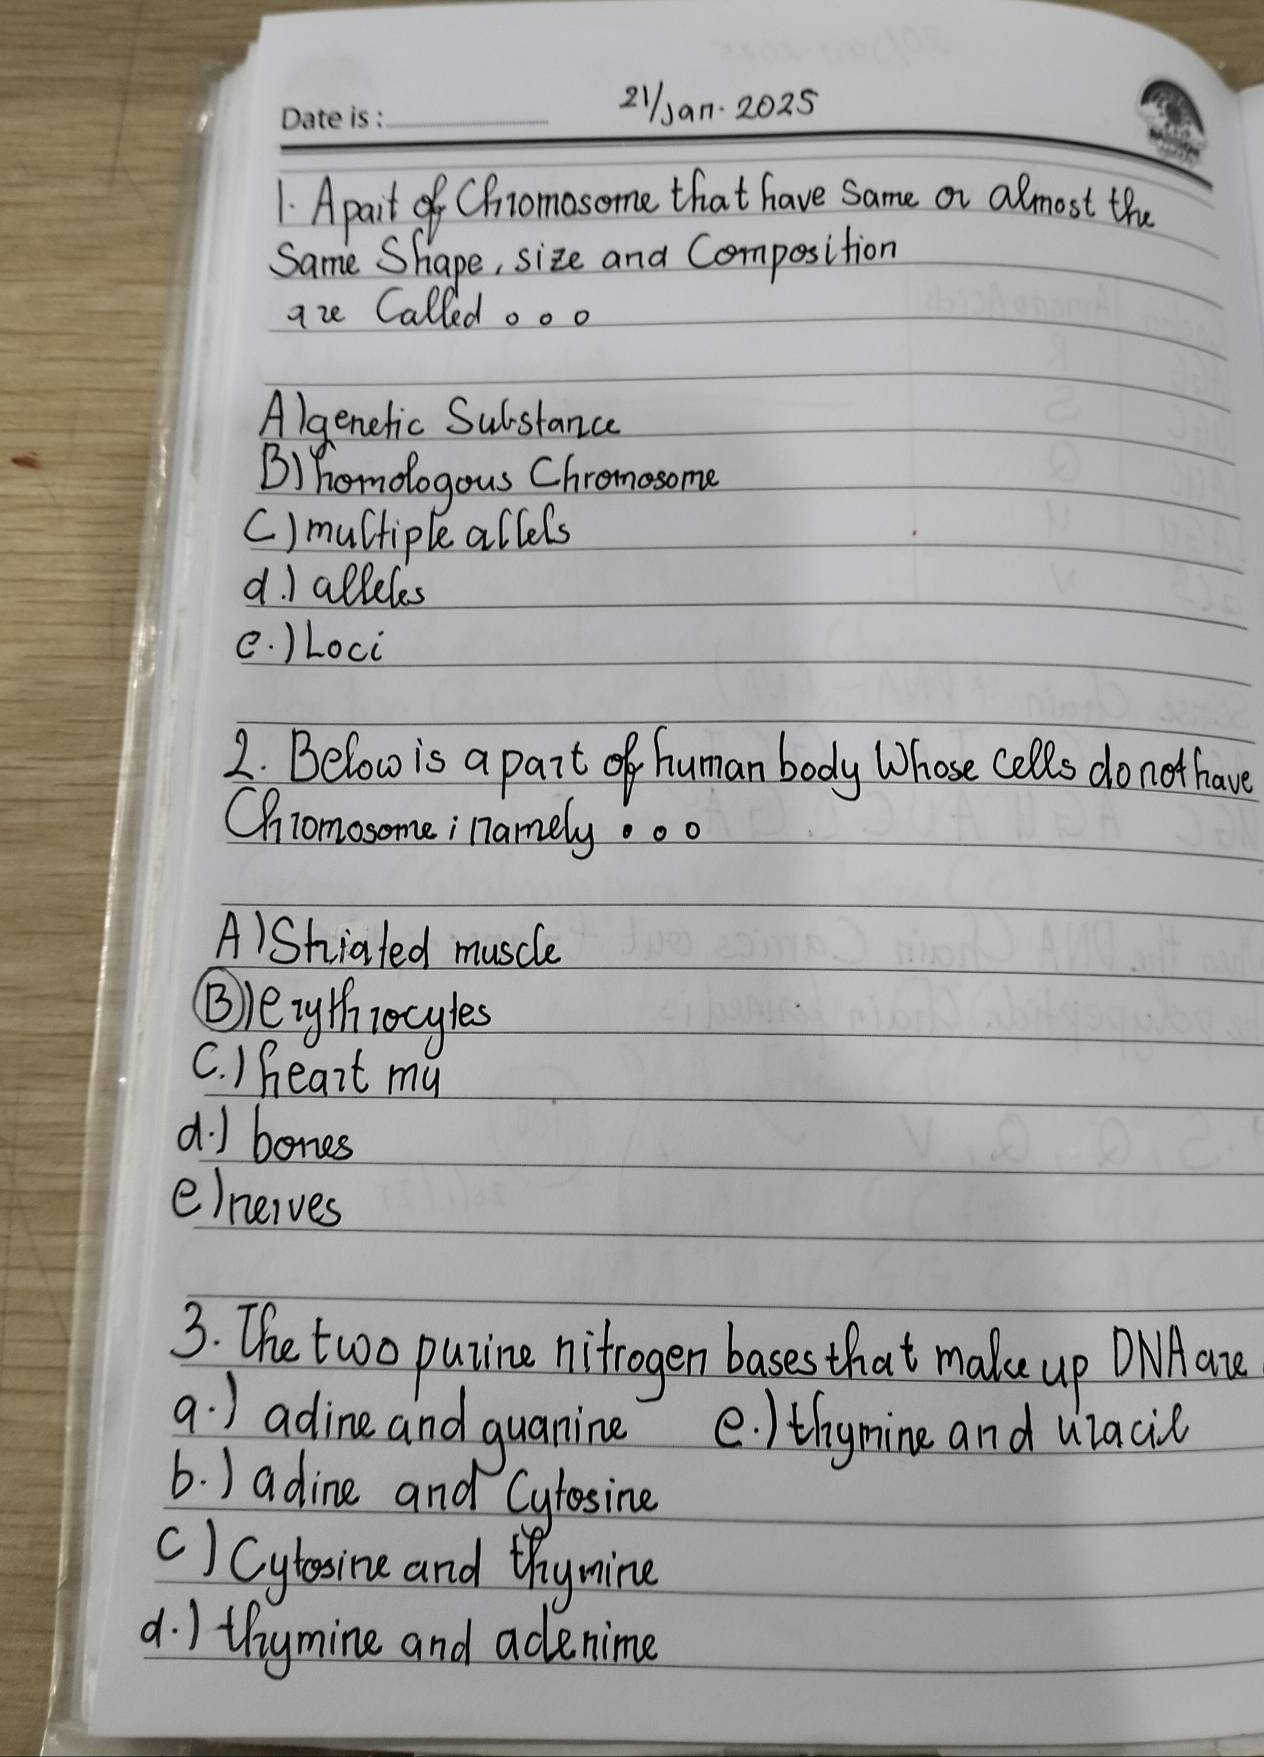 Date is :
21/Jan. 2025
1. A pair of Chromosome that have Same or almost the
Same Shape, size and Composition
are Called ...
A) genetic Substance
B) homologous Chromosome
C) multiple allels
d.) alleles
e.) Loci
2. Below is a part of human body Whose cells do not have
Chromosome ; namely ...
A) Striated muscle
B) erythrocytes
C.) heart my
d.) bones
e) nerves
3. The two purine nitrogen bases that make up DNA are
a.) adine and guanine e.) thymine and uracil
b.) adine and Cytosine
c) Cytosine and thymine
d.) thymine and adenime